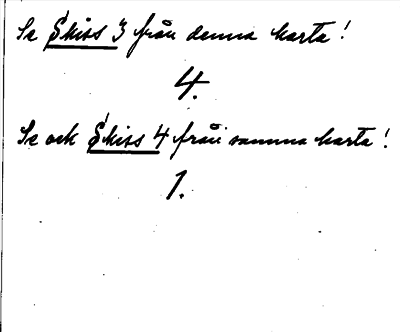 Se Skiss 3 från denna karta!
4.
Se ock Skiss 4 från samma karta!
1.